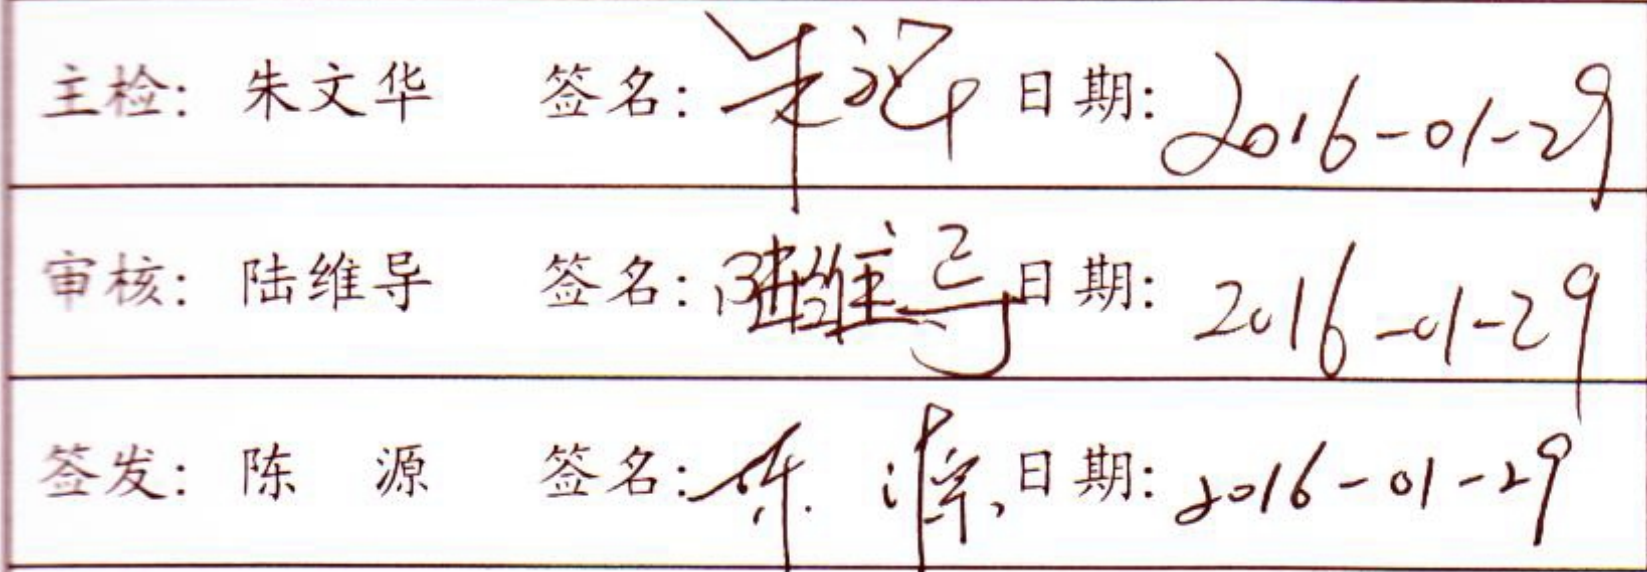 主检: 朱文华 签名: 朱文华 日期: 2016-01-29
审核: 陆维导 签名: 陆维导 日期: 2016-01-29
签发: 陈 源 签名: 陈 源 日期: 2016-01-29